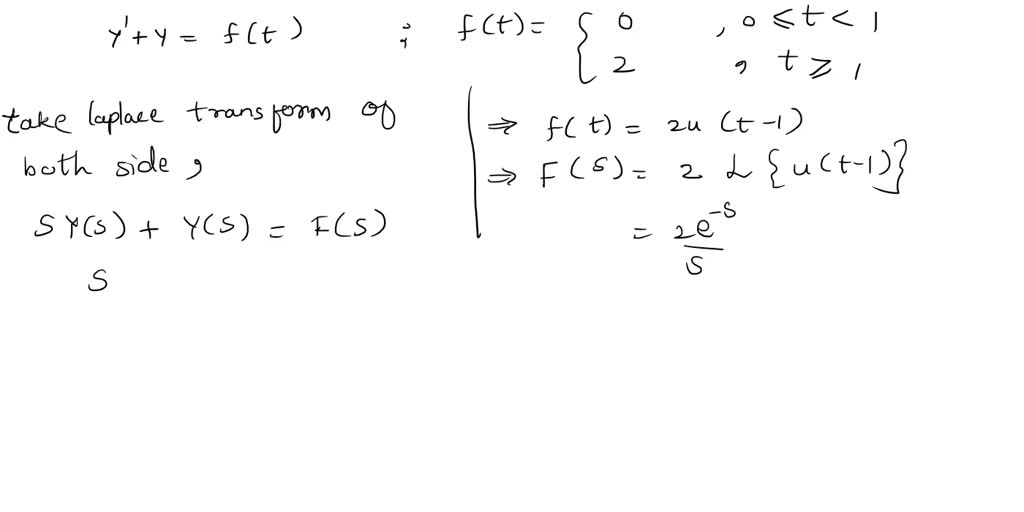 y' + y = f(t) ; f(t) = { 0 , 0 ≤ t < 1
2 , t ≥ 1
take laplace transform of
both side ,
S Y(s) + Y(s) = F(s)
S
⇒ f(t) = 2u (t-1)
⇒ F(s) = 2 L {u(t-1)}
= 2e^-s / s